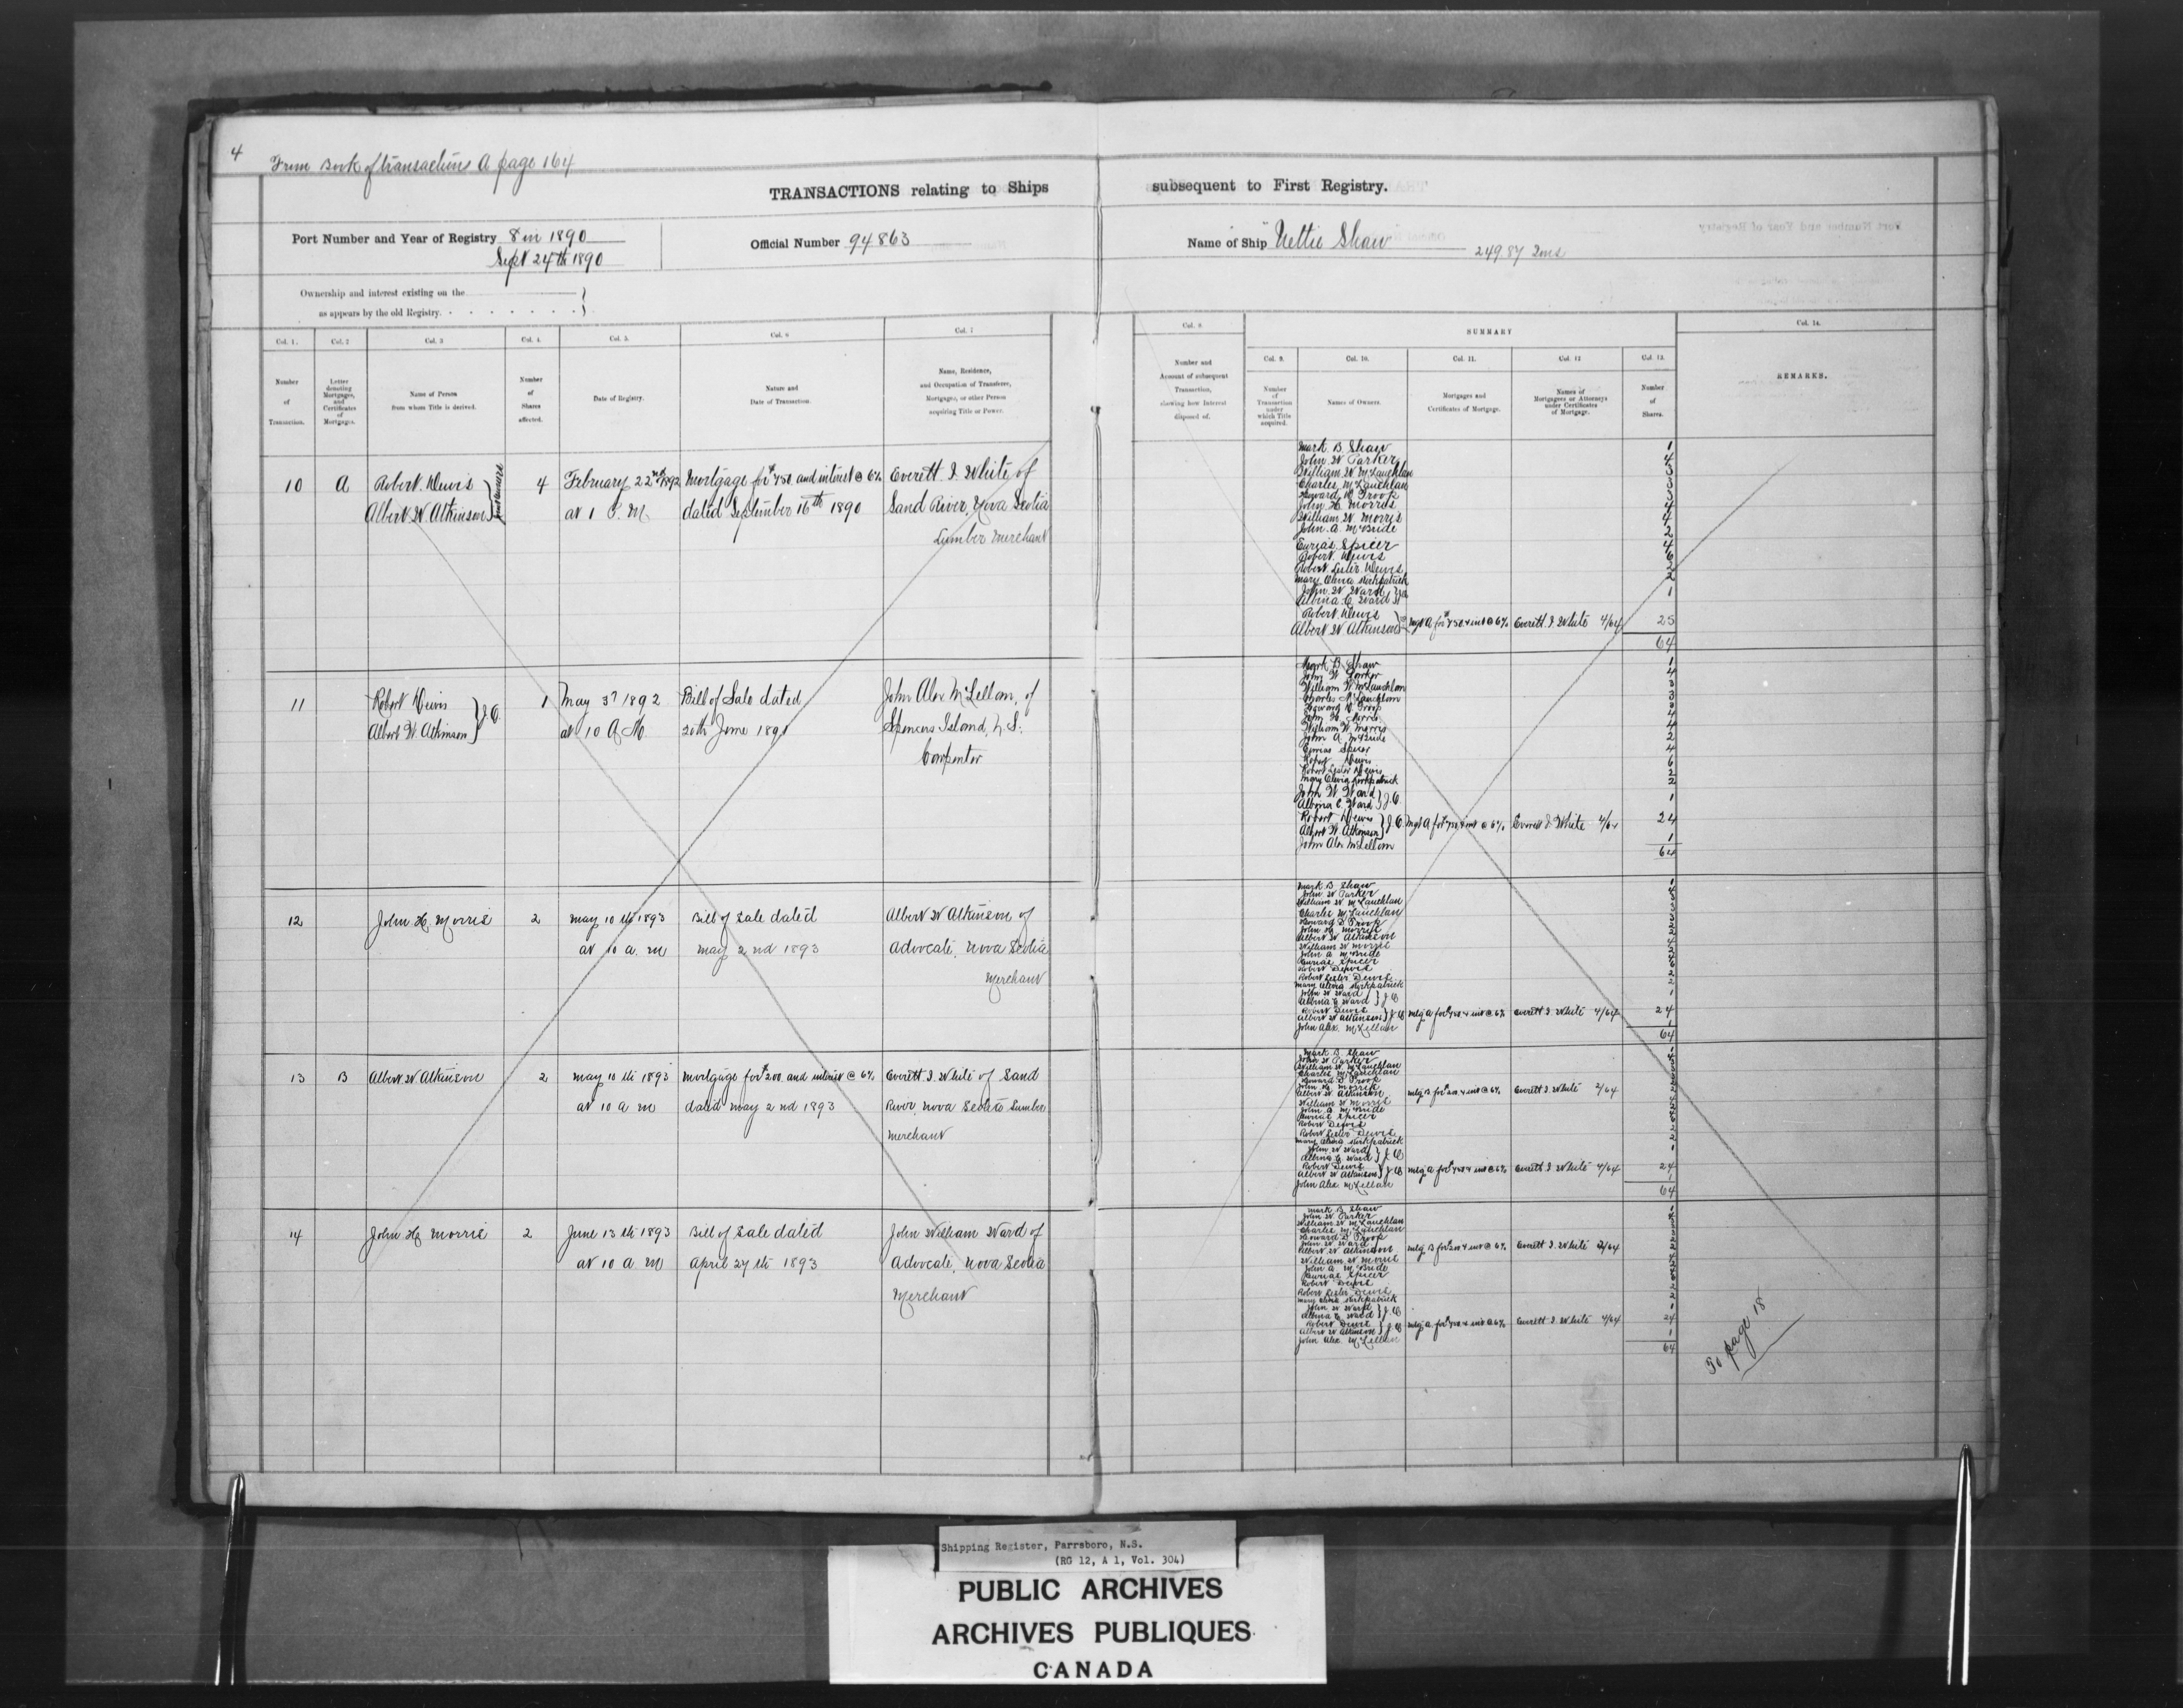 4
From Book of transactions A page 164
TRANSACTIONS relating to Ships
subsequent to First Registry.
Port Number and Year of Registry 8 in 1890
Sept 24th 1890
Official Number 94863
Name of Ship "Nettie Shaw"
249.87 Tons
Ownership and interest existing on the
as appears by the old Registry.
Col. 1.
Number
of
Transaction.
Col. 2
Letter
denoting
Mortgages,
and
Certificates
of
Mortgages.
Col. 3
Name of Person
from whom Title is derived.
Col. 4.
Number
of
Shares
affected.
Col. 5.
Date of Registry.
Col. 6
Nature and
Date of Transaction.
Col. 7
Name, Residence,
and Occupation of Transferee,
Mortgagee, or other Person
acquiring Title or Power.
Col. 8.
Number and
Account of subsequent
Transaction,
showing how Interest
disposed of.
SUMMARY
Col. 9.
Number
of
Transaction
under
which Title
acquired.
Col. 10.
Names of Owners.
Col. 11.
Mortgages and
Certificates of Mortgage.
Col. 12
Names of
Mortgagees or Attorneys
under Certificates
of Mortgage.
Col. 13.
Number
of
Shares.
Col. 14.
REMARKS.
10 A Robert Dewis 4 February 22nd 1892 Mortgage for $750 and interest @ 6% Everett I. White of
Albert W Atkinson at 1 P. M. dated September 16th 1890 Sand River, Nova Scotia
Lumber Merchant
Mark B. Shaw 1
John W Parker 4
William W McLauchlan 3
Charles McLauchlan 3
Howard D Troop 3
John H. Morris 4
William W. Morris 4
John A. McBride 2
Eurias Spicer 4
Robert Dewis 6
Robert Lester Dewis 2
Mary Olevia Kirkpatrick 2
John W Ward
Albina C Ward 1
Robert Dewis
Albert W Atkinson Mtg A for $750 & int @ 6% Everett I. White 4/64 25
64
11 Robert Dewis 1 May 3rd 1892 Bill of Sale dated John Alex McLellan, of
Albert W. Atkinson J.O. at 10 A. M. 20th June 1891 Spencers Island, N.S.
Carpenter
Mark B. Shaw 1
John W Parker 4
William W McLauchlan 3
Charles McLauchlan 3
Howard D. Troop 3
John H. Morris 4
William W. Morris 4
John A. McBride 2
Eurias Spicer 4
Robert Dewis 6
Robert Lester Dewis 2
Mary Olevia Kirkpatrick 2
John W Ward
Albina C. Ward J.O. 1
Robert Dewis
Albert W. Atkinson J.O. Mtg A for $750 & int @ 6% Everett I White 4/64 24
John Alex McLellan 1
64
12 John H. Morris 2 May 10th 1893 Bill of Sale dated Albert W Atkinson of
at 10 a. m May 2nd 1893 Advocate, Nova Scotia
Merchant
Mark B. Shaw 1
John W Parker 4
William W McLauchlan 3
Charles McLauchlan 3
Howard D Troop 3
John H. Morris 2
Albert W Atkinson 2
William W Morris 4
John A McBride 2
Eurias Spicer 4
Robert Dewis 6
Robert Lester Dewis 2
Mary Olevia Kirkpatrick 2
John W Ward
Albina C Ward J O 1
Robert Dewis
Albert W Atkinson J O Mtg A for $750 & int @ 6% Everett I. White 4/64 24
John Alex. McLellan 1
64
13 B Albert W Atkinson 2 May 10th 1893 Mortgage for $200 and interest @ 6% Everett I. White of Sand
at 10 a m dated May 2nd 1893 River, Nova Scotia Lumber
Merchant
Mark B. Shaw 1
John W Parker 4
William W McLauchlan 3
Charles McLauchlan 3
Howard D Troop 3
John H. Morris 2
Albert W. Atkinson Mtg B for $200 & int @ 6% Everett I. White 2/64 2
William W Morris 4
John A McBride 2
Eurias Spicer 4
Robert Dewis 6
Robert Lester Dewis 2
Mary Olevia Kirkpatrick 2
John W Ward
Albina C Ward J O 1
Robert Dewis
Albert W Atkinson J O Mtg A for $750 & int @ 6% Everett I. White 4/64 24
John Alex McLellan 1
64
14 John H. Morris 2 June 13th 1893 Bill of Sale dated John William Ward of
at 10 a m April 27th 1893 Advocate, Nova Scotia
Merchant
Mark B. Shaw 1
John W Parker 4
William W McLauchlan 3
Charles McLauchlan 3
Howard D Troop 3
John W. Ward 2
Albert W Atkinson Mtg B for $200 & int @ 6% Everett I. White 2/64 2
William W Morris 4
John A McBride 2
Eurias Spicer 4
Robert Dewis 6
Robert Lester Dewis 2
Mary Olevia Kirkpatrick 2
John W Ward
Albina C Ward J O 1
Robert Dewis
Albert W Atkinson J.O. Mtg A for $750 & int @ 6% Everett I White 4/64 24
John Alex. McLellan 1
64
To page 18
Shipping Register, Parrsboro, N.S.
(RG 12, A 1, Vol. 304)
PUBLIC ARCHIVES
ARCHIVES PUBLIQUES
CANADA